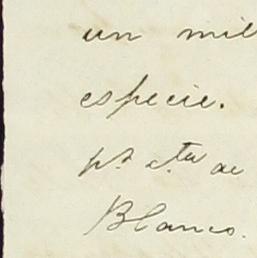 un mil
especie.
pr. cta de
Blanco.